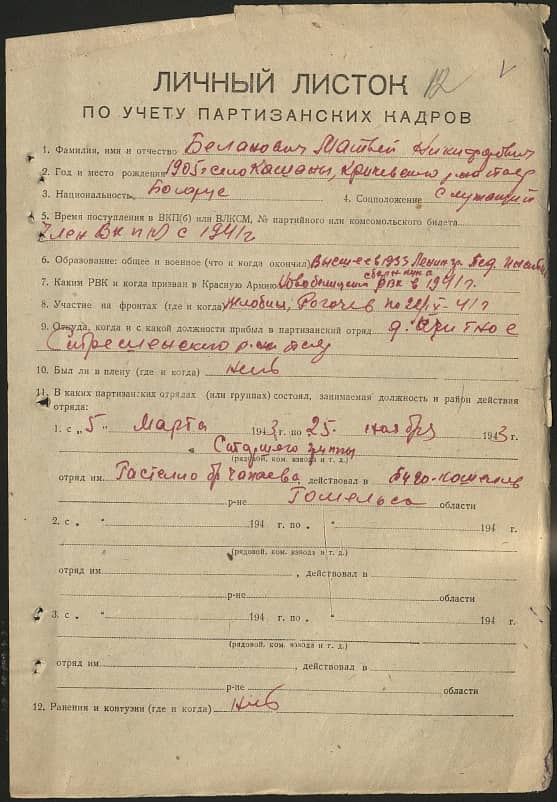 12
ЛИЧНЫЙ ЛИСТОК
ПО УЧЕТУ ПАРТИЗАНСКИХ КАДРОВ
1. Фамилия, имя и отчество Беланович Матвей Никифорович
2. Год и место рождения 1905 г село Кашаны,
3. Национальность Беларус 4. Соцположение Служащий
5. Время поступления в ВКП(б) или ВЛКСМ, № партийного или комсомольского билета
Член ВКП(б) с 1941 г
6. Образование: общее и военное (что и когда окончил) Высшее в 1935 Ленингр. Пед. Институт
7. Каким РВК и когда призван в Красную Армию Новобелицким РВК в 1941 г.
8. Участие на фронтах (где и когда) Жлобин, Рогачев по 41 г
9. Откуда, когда и с какой должности прибыл в партизанский отряд д.
10. Был ли в плену (где и когда)
11. В каких партизанских отрядах (или группах) состоял, занимаемая должность и район действия
отряда:
1. с „5" Марта 1943 г. по 25 ноября 1943 г.
(рядовой, ком. взвода и т. д.)
отряд им Гастелло бр Чапаева, действовал в Буда-Кошелев
р-не Гомельск области
2. с „ " 194 г. по „ " 194 г.
(рядовой, ком. взвода и т. д.)
отряд им , действовал в
р-не области
3. с „ " 194 г. по „ " 194 г.
(рядовой, ком. взвода и т. д.)
отряд им , действовал в
р-не области
12. Ранения и контузии (где и когда)